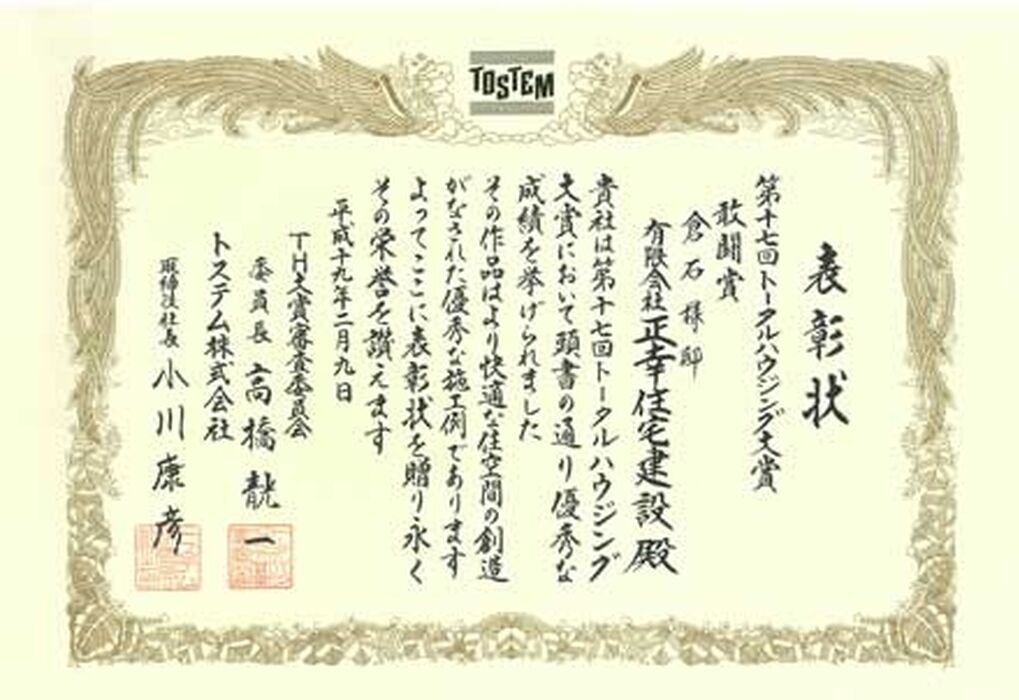 TOSTEM
表彰状
第十七回トータルハウジング大賞
敢闘賞
倉石様邸
有限会社正幸住宅建設殿
貴社は第十七回トータルハウジング
大賞において頭書の通り優秀な
成績を挙げられました
その作品はより快適な住空間の創造
がなされた優秀な施工例であります
よってここに表彰状を贈り永く
その栄誉を讃えます
平成十九年二月九日
TH大賞審査委員会
委員長 高橋 一
トステム株式会社
取締役社長 小川康彦